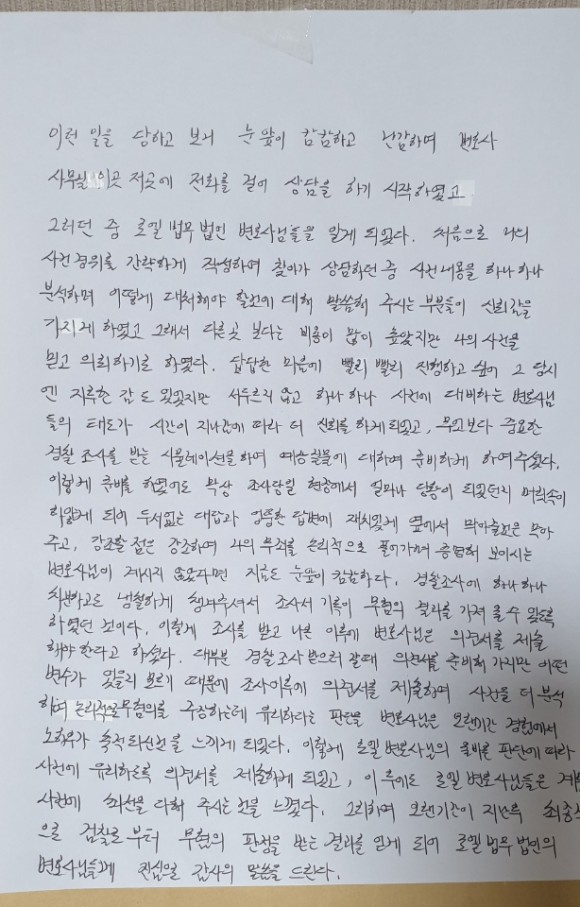 이런 일을 당하고 보니 눈앞이 캄캄하고 난감하여 변호사
사무실 이곳 저곳에 전화를 걸어 상담을 하기 시작하였고
그러던 중 로일 법무법인 변호사님들을 알게 되었다. 처음으로 나의
사건 경위를 간략하게 작성하여 찾아가 상담하던 중 사건내용을 하나 하나
분석하며 어떻게 대처해야 할것에 대해 말씀해 주시는 부분들이 신뢰감을
가지게 하였고 그래서 다른곳 보다는 비용이 많이 높았지만 나의 사건을
믿고 의뢰하기로 하였다. 답답한 마음에 빨리 빨리 진행하고 싶어 그 당시
엔 지루한 감도 있었지만 서두르지 않고 하나 하나 사건에 대비하는 변호사님
들의 태도가 시간이 지나감에 따라 더 신뢰를 하게 되었고, 무엇보다 중요한
경찰 조사를 받는 시뮬레이션을 하여 예상질문에 대하여 준비하게 하여주셨다.
이렇게 준비를 하였어도 막상 조사당일 현장에서 얼마나 당황이 되었던지 머릿속이
하얗게 되어 두서없는 대답과 엉뚱한 답변에 재치있게 옆에서 막아줄것은 막아
주고, 강조할 점은 강조하여 나의 무죄를 논리적으로 풀어가며 증명해 보이시는
변호사님이 계시지 않았다면 지금도 눈앞이 캄캄하다. 경찰조사에 하나 하나
차분하고도 냉철하게 챙겨주셔서 조사서 기록이 무혐의 결과를 가져 올 수 있도록
하였던 것이다. 이렇게 조사를 받고 나온 이후에 변호사님은 의견서를 제출
해야 한다고 하셨다. 대부분 경찰조사 받으러 갈때 의견서를 준비해 가지만 어떤
변수가 있을지 모르기 때문에 조사이후에 의견서를 제출하여 사건을 더 분석
하여 논리적으로 무혐의를 주장하는데 유리하다는 판단을 변호사님은 오랜기간 경험에서
노하우가 축적되신것을 느끼게 되었다. 이렇게 로일 변호사님의 올바른 판단에 따라
사건에 유리하도록 의견서를 제출하게 되었고, 이후에도 로일 변호사님들은 계
사건에 최선을 다해 주시는 것을 느꼈다. 그리하여 오랜기간이 지난후 최종적
으로 검찰로부터 무혐의 판정을 받는 결과를 얻게 되어 로일 법무법인의
변호사님들에게 진심으로 감사의 말씀을 드린다.